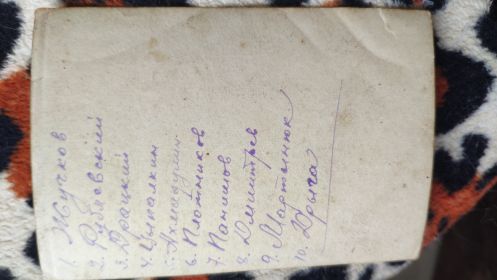 1. Жучков
2. Рублевский
3. Драцкий
4. Цыпалкин
5. Ахмадулин
6. Плотников
7. Паншов
8. Дмитрев
9. Мартынюк
10. Дрыга